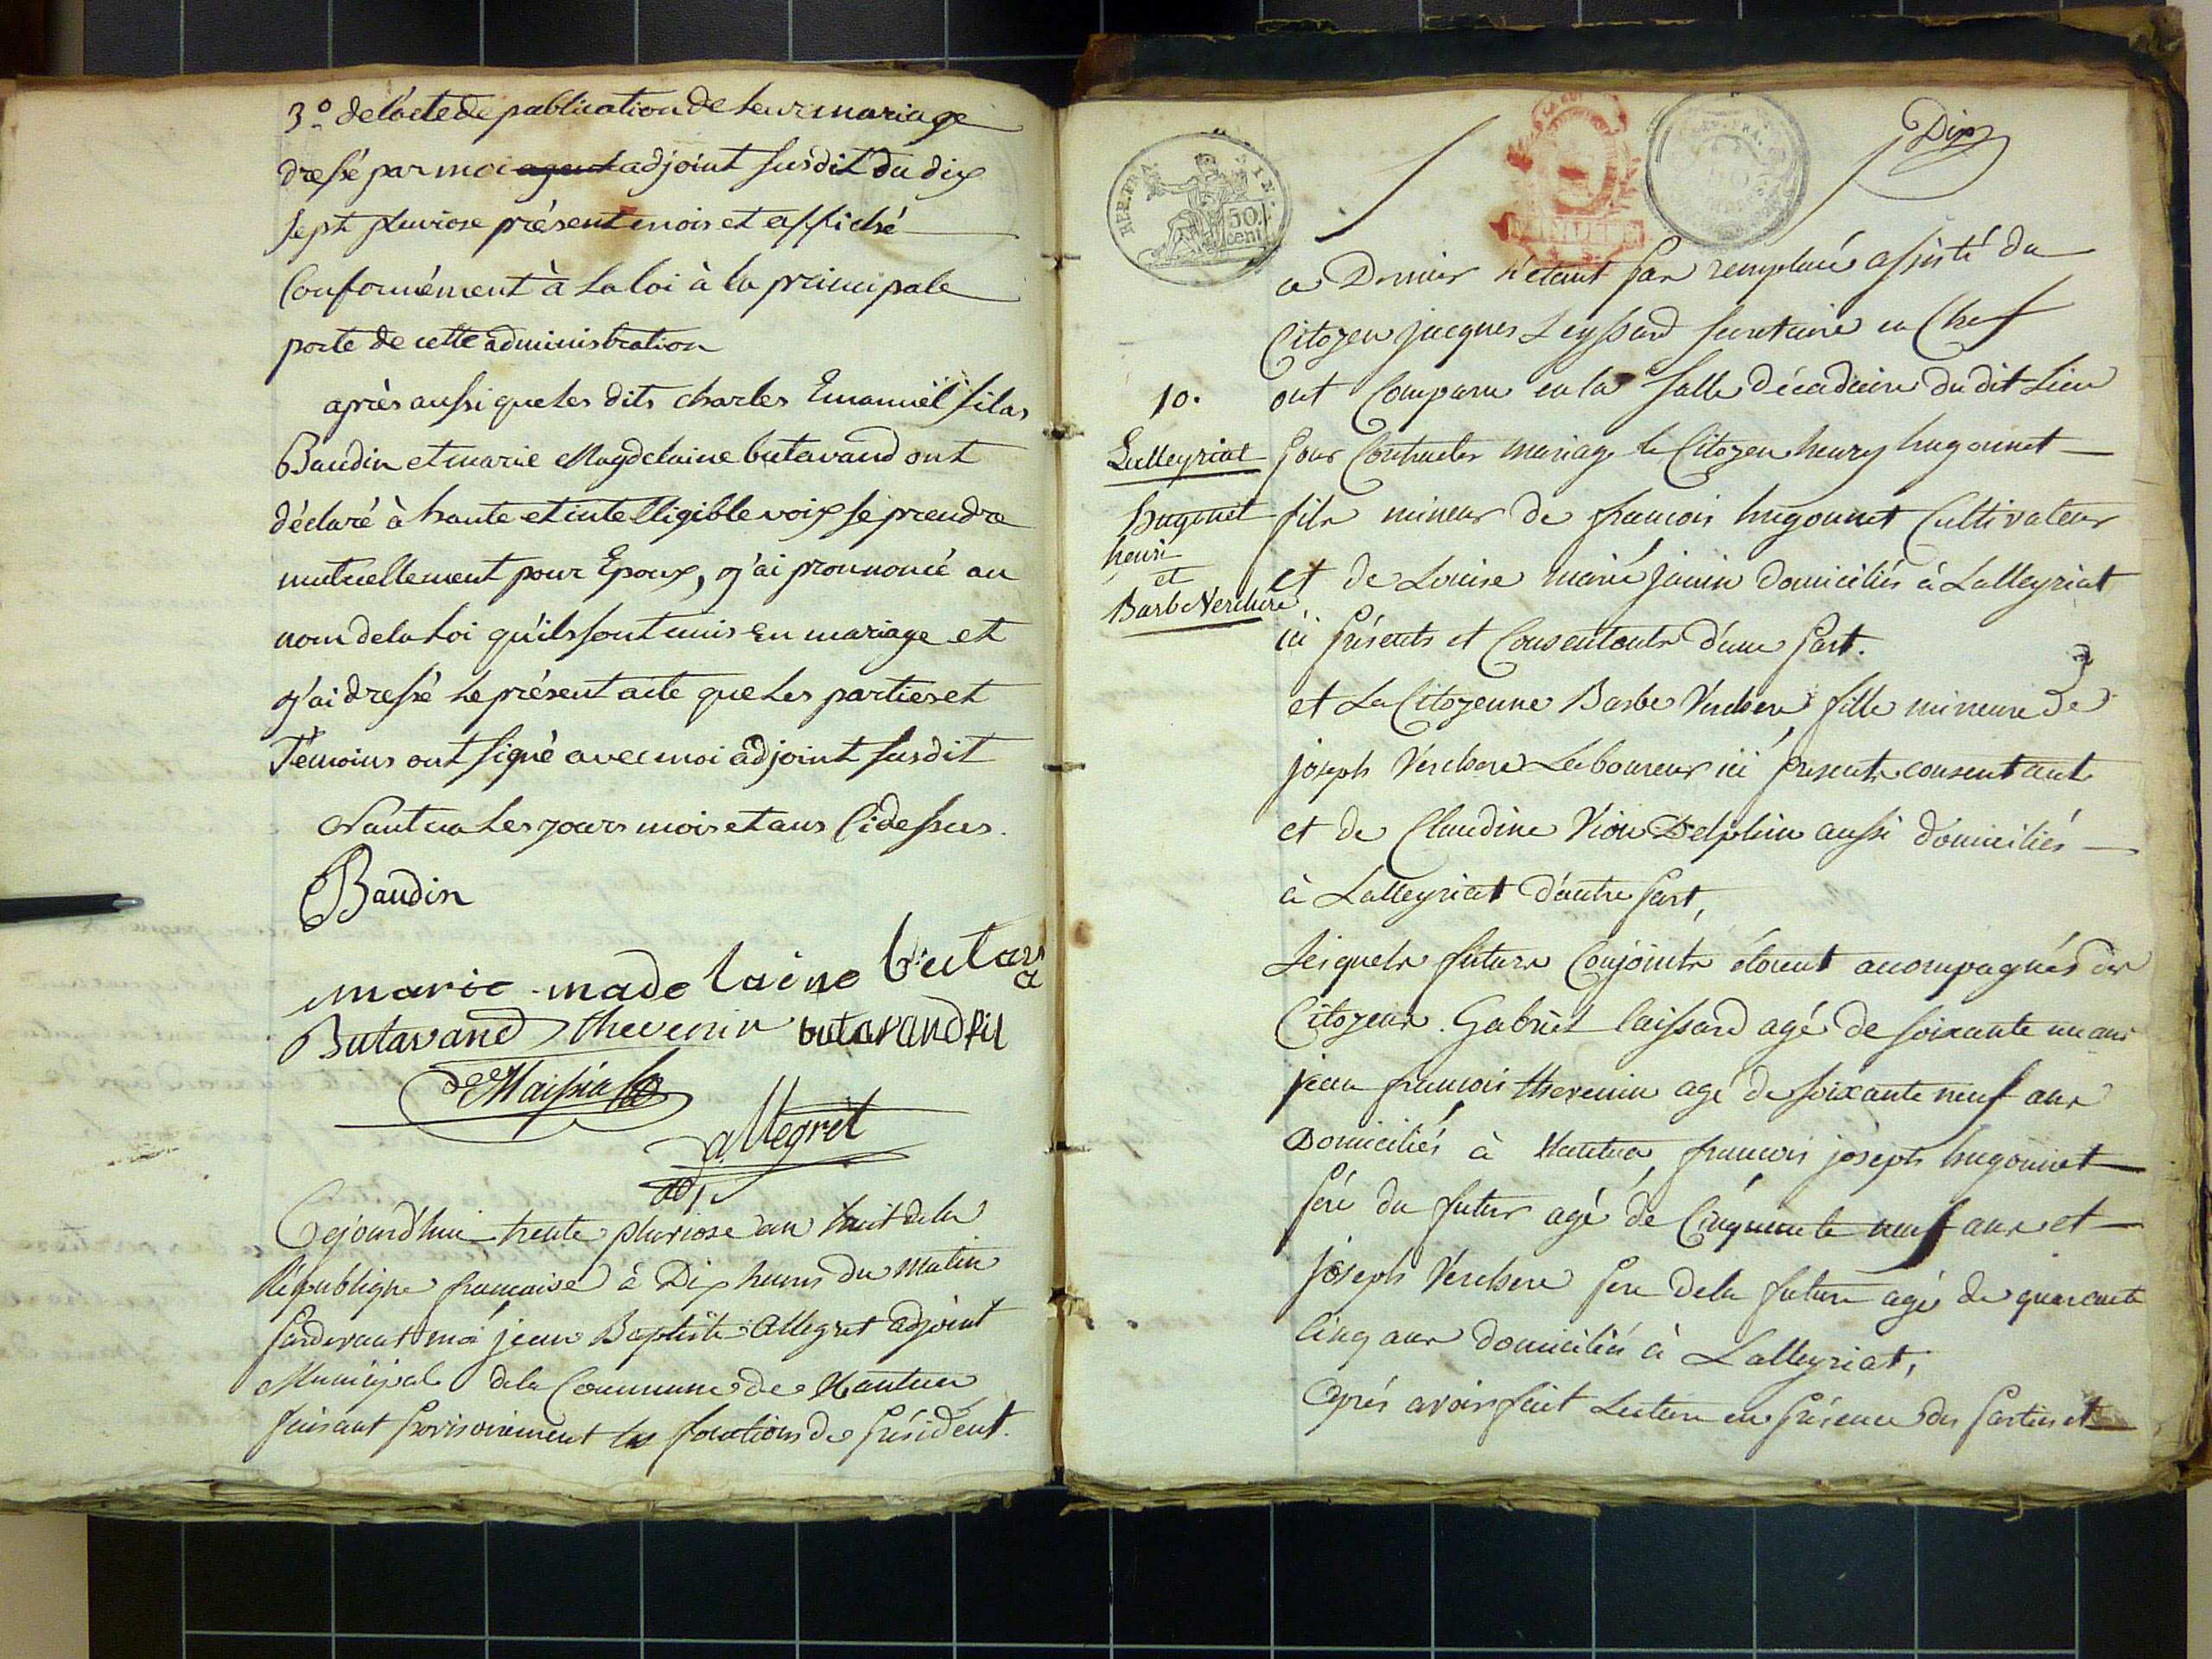 3.º de l'acte de publication de leur mariage
dressé par moi agent adjoint susdit du dix
sept pluviose présent mois et affiché
Conformément à la loi à la principale
porte de cette administration
après aussi que les dits charles Emanuël silas
Baudin et marie Magdelaine butavand ont
déclaré à haute et intelligible voix se prendre
mutuellement pour Epoux, j'ai prounoncé au
nom de la Loi qu'ils sont unis en mariage et
j'ai dressé le présent acte que les parties et
Témoins ont signé avec moi adjoint susdit
Nantua les jours mois et ans Cidessus.
Baudin
marie madelaine butava
Butavand thevenin butavand fils
Maissiat
allegret
adj
Cejourd'hui trente pluviose an huit de la
République francaise à Dix heures du matin
pardevant moi jean Baptiste allegret adjoint
Municipal de la Commune de Nantua
faisant provisoirement les fonctions de président.
REP. FRA.
50.
cent
Dix
ce Dernier n'étant pas remplacé assisté du
Citoyen jacques Leyssard secretaire en Chef
ont Comparu en la salle décadaire du dit Lieu
pour Contracter mariage le Citoyen henry hugonnet
fils mineur de francois hugonnet Cultivateur
et de Louise marie janin domiciliés à Lalleyriat
ici présents et Consentants d'une part.
et La Citoyenne Barbe Verchere fille mineure de
joseph Verchere Laboureur ici présent consentant
et de Claudine Vion Delphin aussi domiciliés
à Lalleyriat d'autre part,
Lesquels futurs Conjoints étoient acompagnés des
Citoyens Gabriel laissard agé de soixante un ans
jean francois thevenin agé de soixante neuf ans
Domiciliés à Nantua, francois joseph hugonnet
pere du futur agé de Cinquante neuf ans et
joseph Verchere pere de la future agé de quarante
Cinq ans domiciliés à Lalleyriat,
Après avoir fait Lecture en présence des parties et
10.
Lalleyriat
hugonet
henri
et
Barbe Verchere